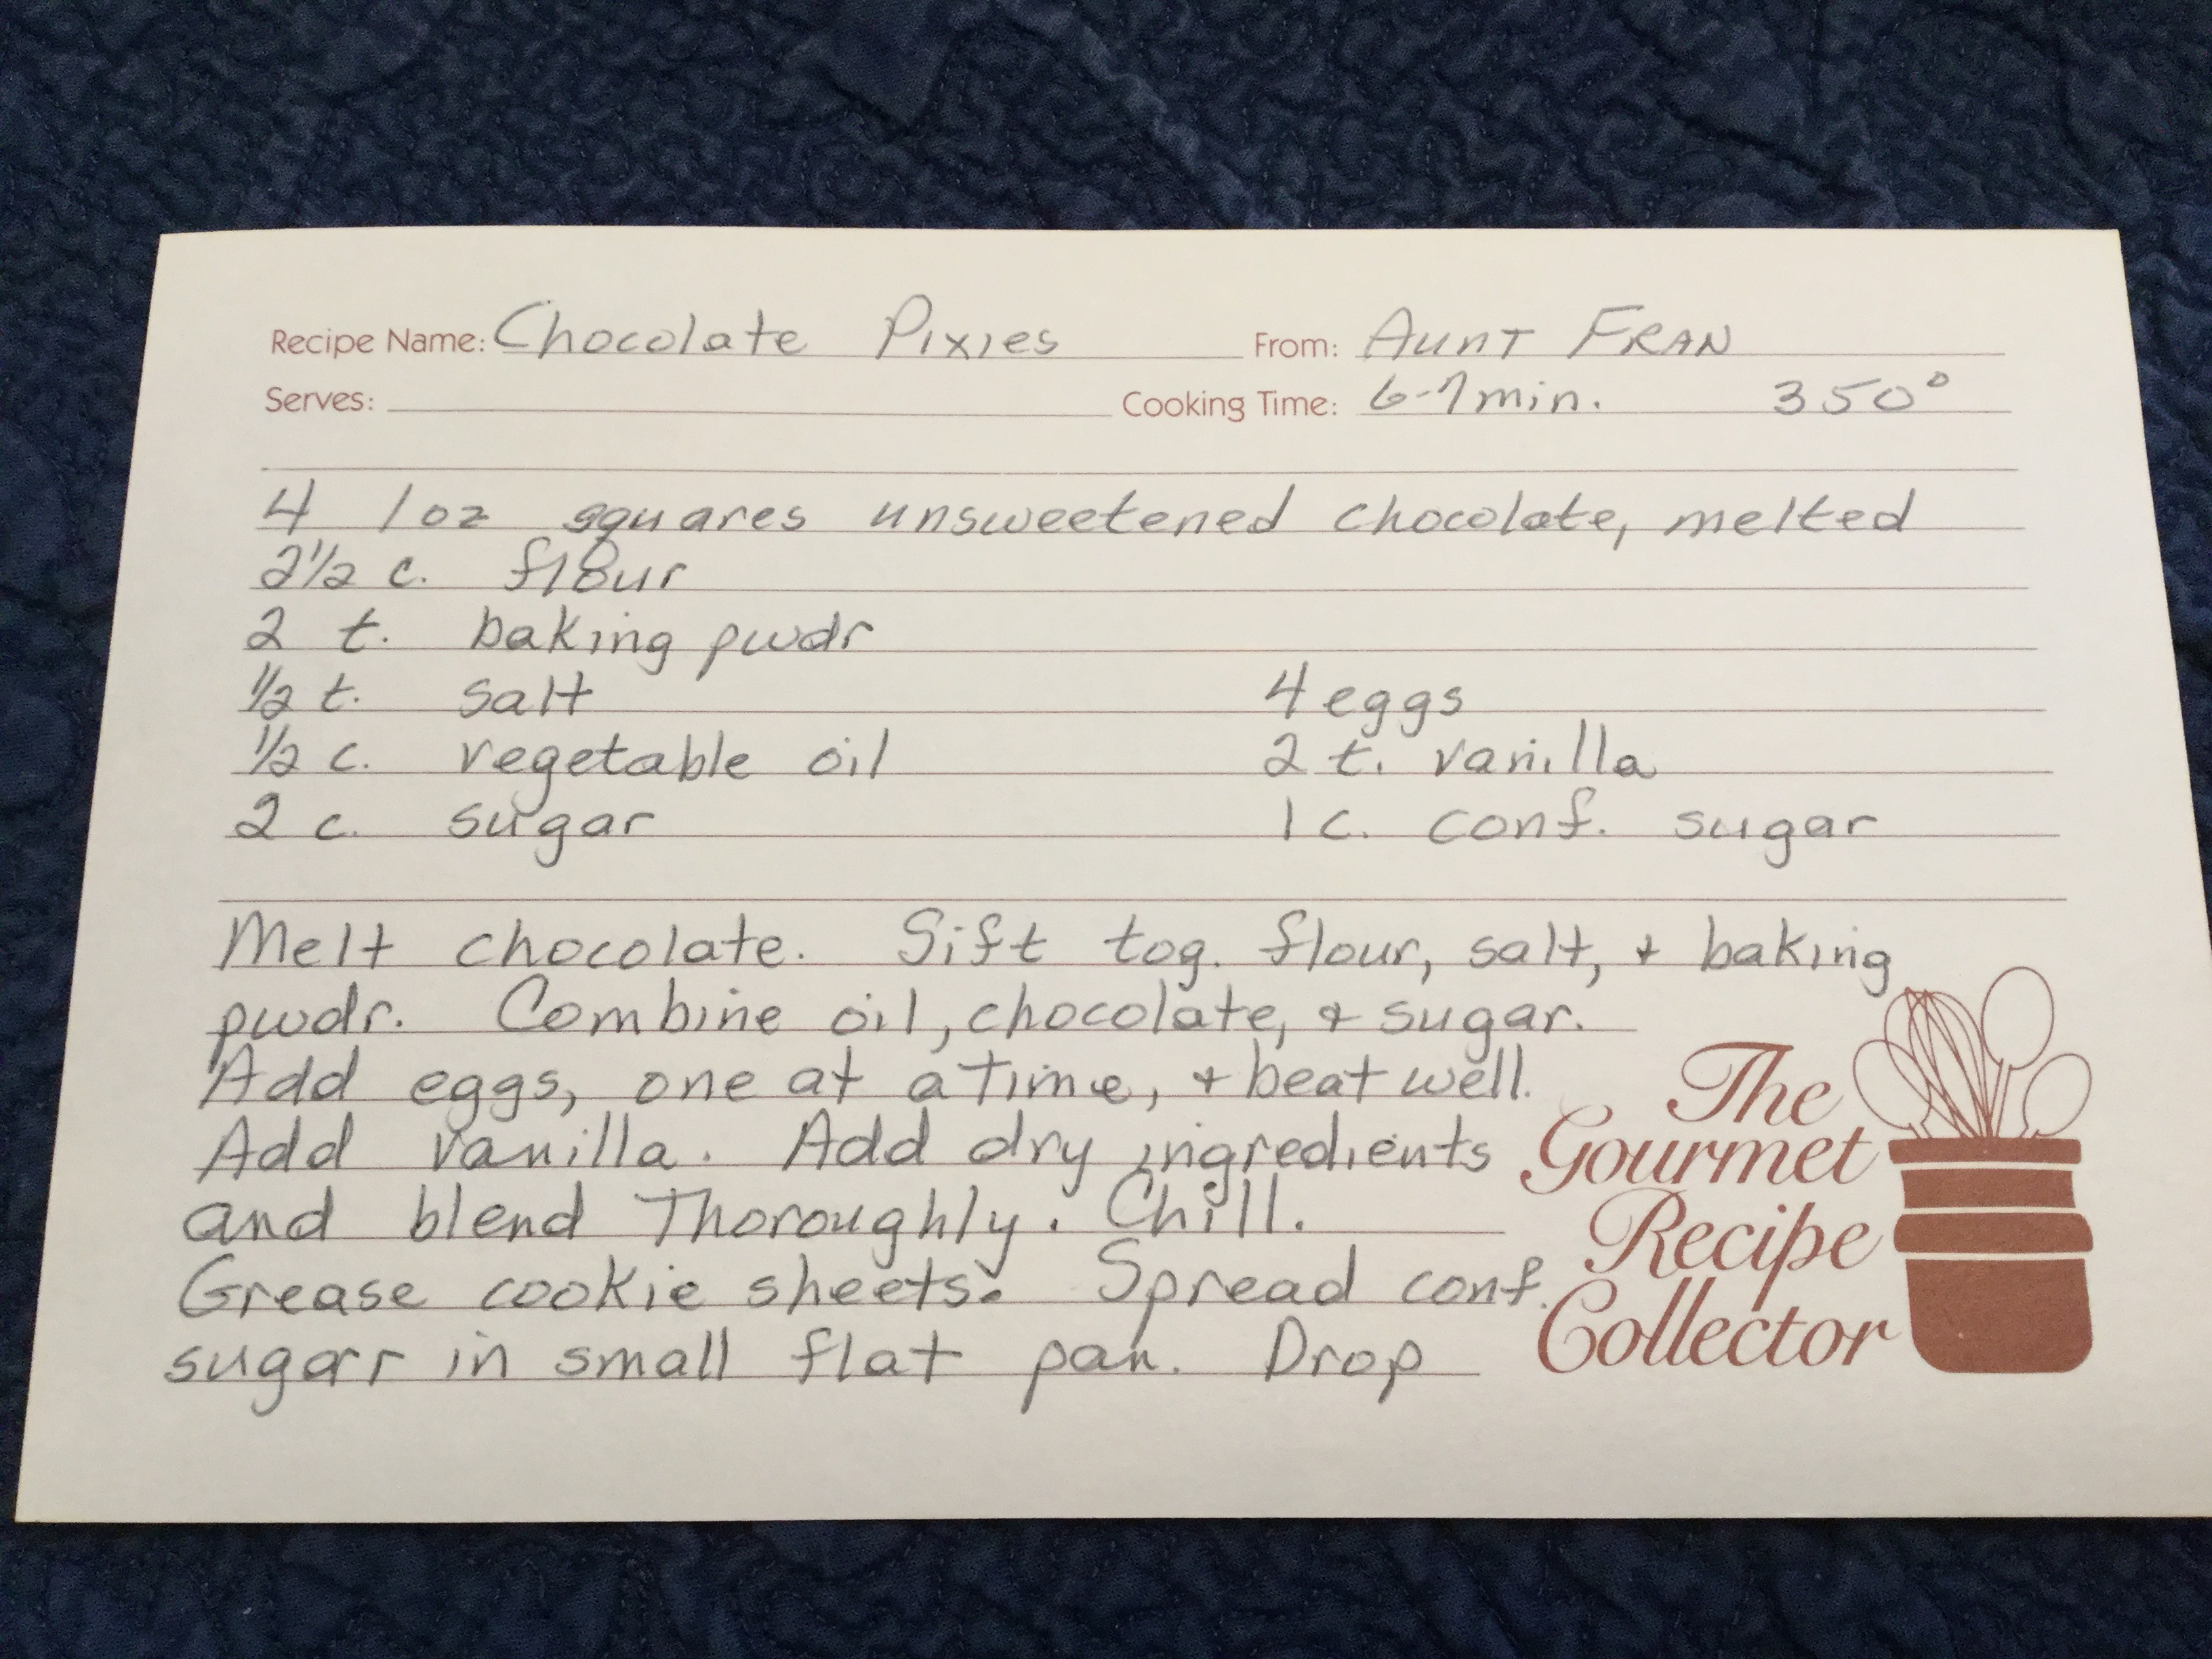 Recipe Name: Chocolate Pixies From: Aunt Fran
Serves: Cooking Time: 6-7min. 350°
4 1oz squares unsweetened chocolate, melted
2½ c. flour
2 t. baking pwdr
½ t. salt 4 eggs
½ c. vegetable oil 2 t. vanilla
2 c. sugar 1 c. conf. sugar
Melt chocolate. Sift tog. flour, salt, + baking
pwdr. Combine oil, chocolate, + sugar.
Add eggs, one at a time, + beat well.
Add vanilla. Add dry ingredients
and blend Thoroughly. Chill.
Grease cookie sheets. Spread conf.
sugar in small flat pan. Drop
The
Gourmet
Recipe
Collector